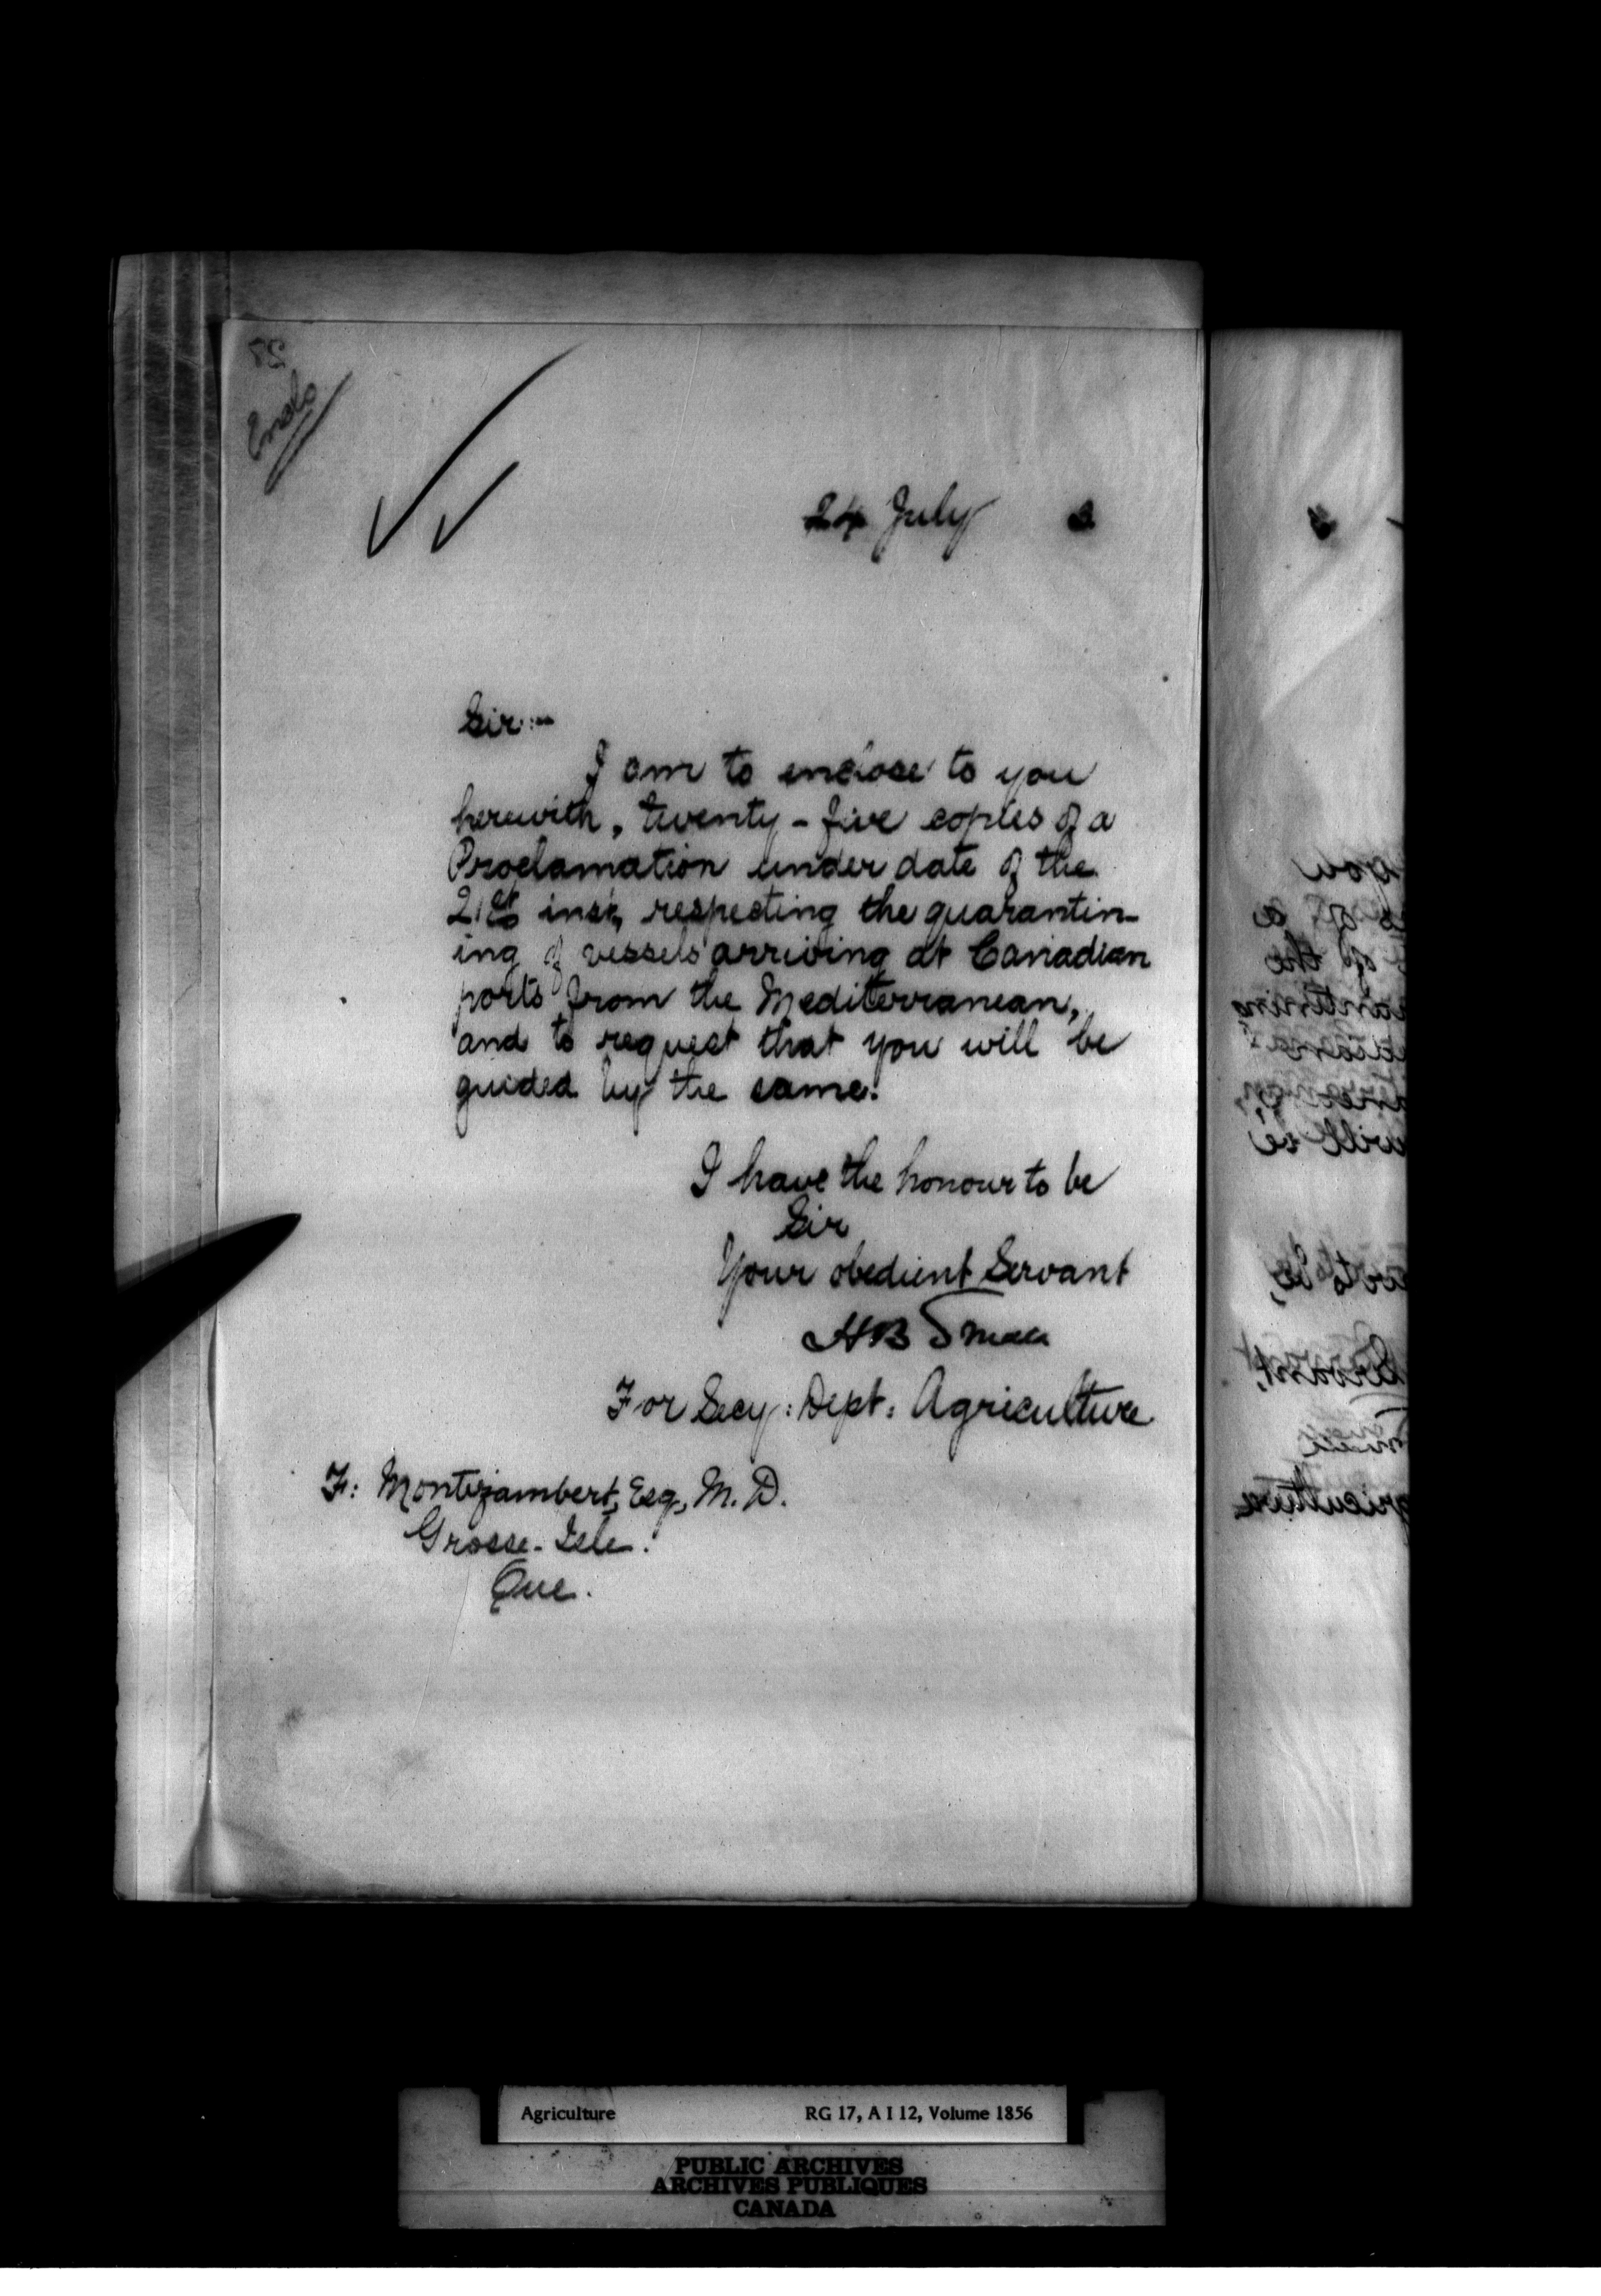 Enclo
24 July
Sir:-
I am to enclose to you
herewith, twenty-five copies of a
Proclamation under date of the
21st inst, respecting the quarantin-
ing of vessels arriving at Canadian
ports from the Mediterranean,
and to request that you will be
guided by the same.
I have the honour to be
Sir
Your obedient Servant
HB Small
For Secy: Dept: Agriculture
F: Montizambert, Esq, M.D.
Grosse-Isle.
Que.
Agriculture RG 17, A I 12, Volume 1856
PUBLIC ARCHIVES
ARCHIVES PUBLIQUES
CANADA